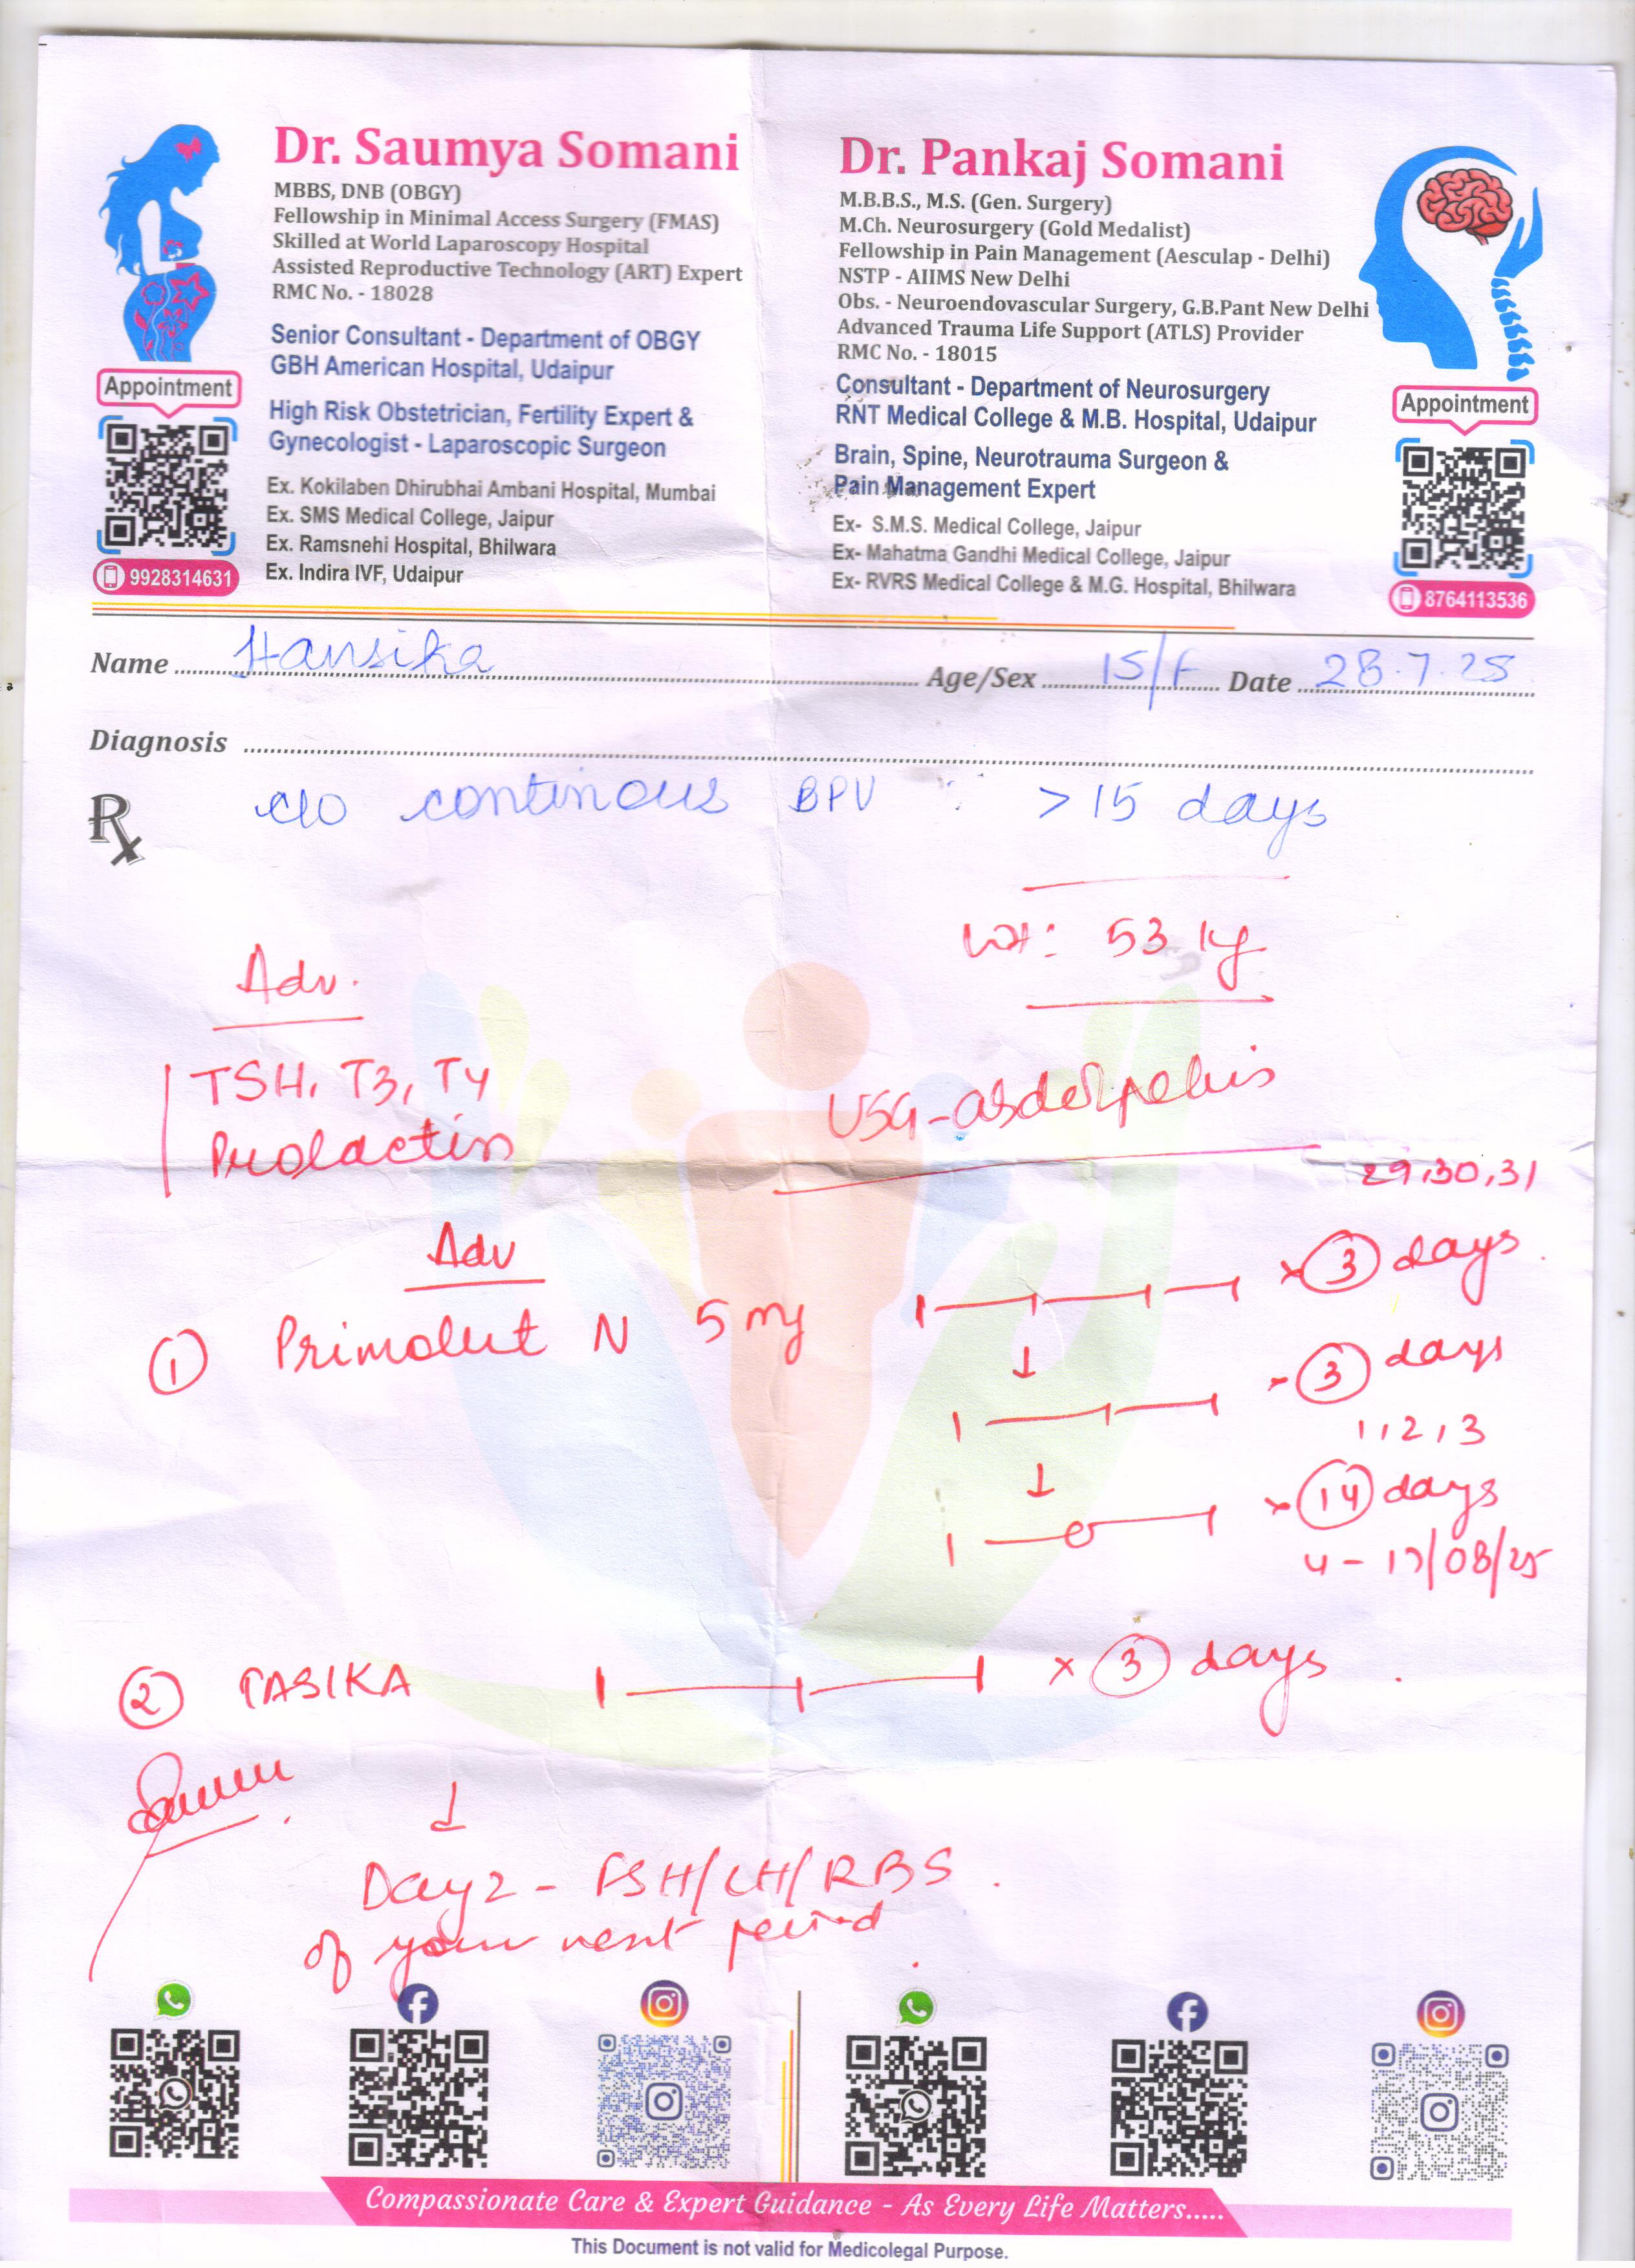 Dr. Saumya Somani
MBBS, DNB (OBGY)
Fellowship in Minimal Access Surgery (FMAS)
Skilled at World Laparoscopy Hospital
Assisted Reproductive Technology (ART) Expert
RMC No. - 18028
Senior Consultant - Department of OBGY
GBH American Hospital, Udaipur
High Risk Obstetrician, Fertility Expert &
Gynecologist - Laparoscopic Surgeon
Ex. Kokilaben Dhirubhai Ambani Hospital, Mumbai
Ex. SMS Medical College, Jaipur
Ex. Ramsnehi Hospital, Bhilwara
Ex. Indira IVF, Udaipur
Appointment
9928314631
Dr. Pankaj Somani
M.B.B.S., M.S. (Gen. Surgery)
M.Ch. Neurosurgery (Gold Medalist)
Fellowship in Pain Management (Aesculap - Delhi)
NSTP - AIIMS New Delhi
Obs. - Neuroendovascular Surgery, G.B.Pant New Delhi
Advanced Trauma Life Support (ATLS) Provider
RMC No. - 18015
Consultant - Department of Neurosurgery
RNT Medical College & M.B. Hospital, Udaipur
Brain, Spine, Neurotrauma Surgeon &
Pain Management Expert
Ex- S.M.S. Medical College, Jaipur
Ex- Mahatma Gandhi Medical College, Jaipur
Ex- RVRS Medical College & M.G. Hospital, Bhilwara
Appointment
8764113536
Name Hansika Age/Sex 15/F Date 28.7.25
Diagnosis
Rx c/o continous BPV >15 days
Wt: 53 kg
Adv.
TSH, T3, T4
Prolactin
USG-abdo/pelvis
29,30,31
Adv
① Primolut N 5 mg × 3 days
↓ × 3 days
1,2,3
↓ × 14 days
4 - 17/08/25
② TASIKA × 3 days
↓
Day 2 - FSH/LH/RBS
of your next period
Compassionate Care & Expert Guidance - As Every Life Matters.....
This Document is not valid for Medicolegal Purpose.